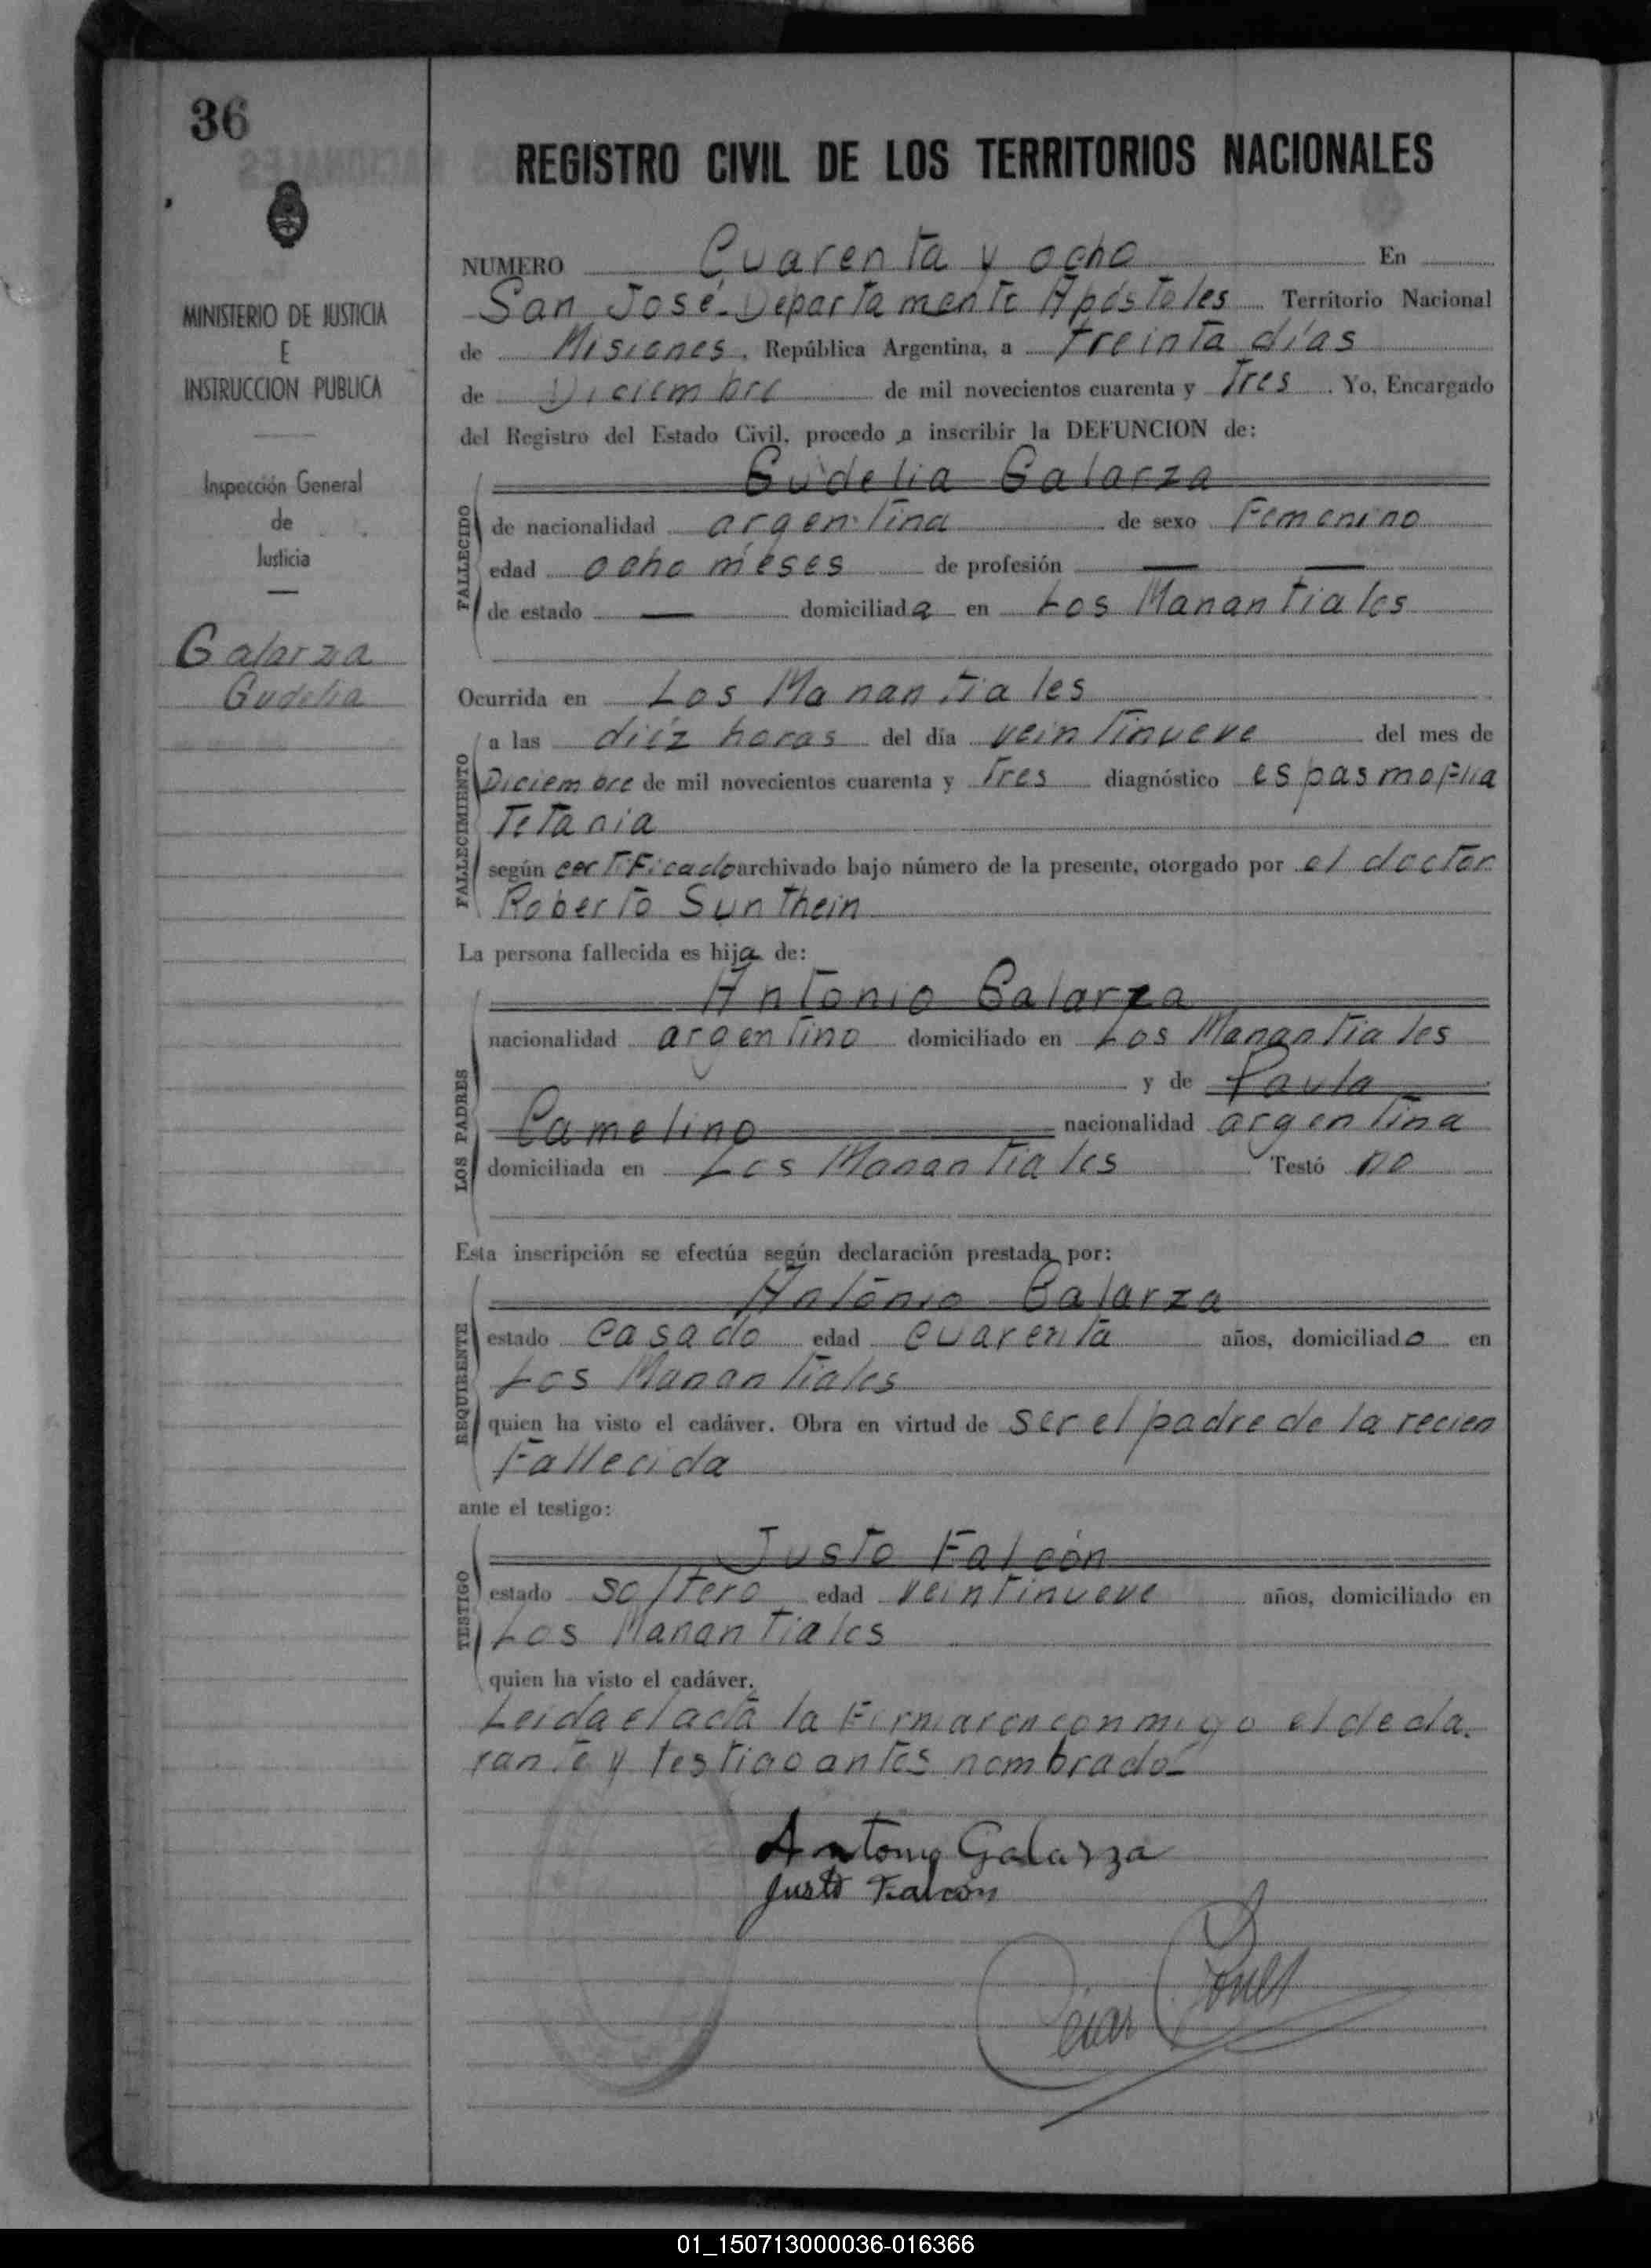 36
MINISTERIO DE JUSTICIA
E
INSTRUCCION PUBLICA
Inspección General
de
Justicia
Galarza
Gudelia
REGISTRO CIVIL DE LOS TERRITORIOS NACIONALES
NUMERO Cuarenta y ocho En
San José-Departamento Apóstoles Territorio Nacional
de Misiones, República Argentina, a treinta días
de Diciembre de mil novecientos cuarenta y Tres. Yo, Encargado
del Registro del Estado Civil, procedo a inscribir la DEFUNCION de:
Gudelia Galarza
FALLECIDO
de nacionalidad argentina de sexo Femenino
edad ocho meses de profesión —— ——
de estado —— domiciliada en Los Manantiales
Ocurrida en Los Manantiales
FALLECIMIENTO
a las diéz horas del día veintinueve del mes de
Diciembre de mil novecientos cuarenta y Tres diagnóstico espasmofilia
Tetania
según certificado archivado bajo número de la presente, otorgado por el doctor
Roberto Sunthein
La persona fallecida es hija de:
LOS PADRES
Antonio Galarza
nacionalidad argentino domiciliado en Los Manantiales
y de Paula
Camelino nacionalidad argentina
domiciliada en Los Manantiales Testó no
Esta inscripción se efectúa según declaración prestada por:
REQUIRENTE
Antonio Galarza
estado casado edad cuarenta años, domiciliado en
Los Manantiales
quien ha visto el cadáver. Obra en virtud de ser el padre de la recien
Fallecida
ante el testigo:
TESTIGO
Justo Falcón
estado soltero edad veintinueve años, domiciliado en
Los Manantiales
quien ha visto el cadáver.
Leida el acta la Firmaron conmigo el decla-
rante y testigo antes nombrado-
Antonio Galarza
Justo Falcón
01_150713000036-016366